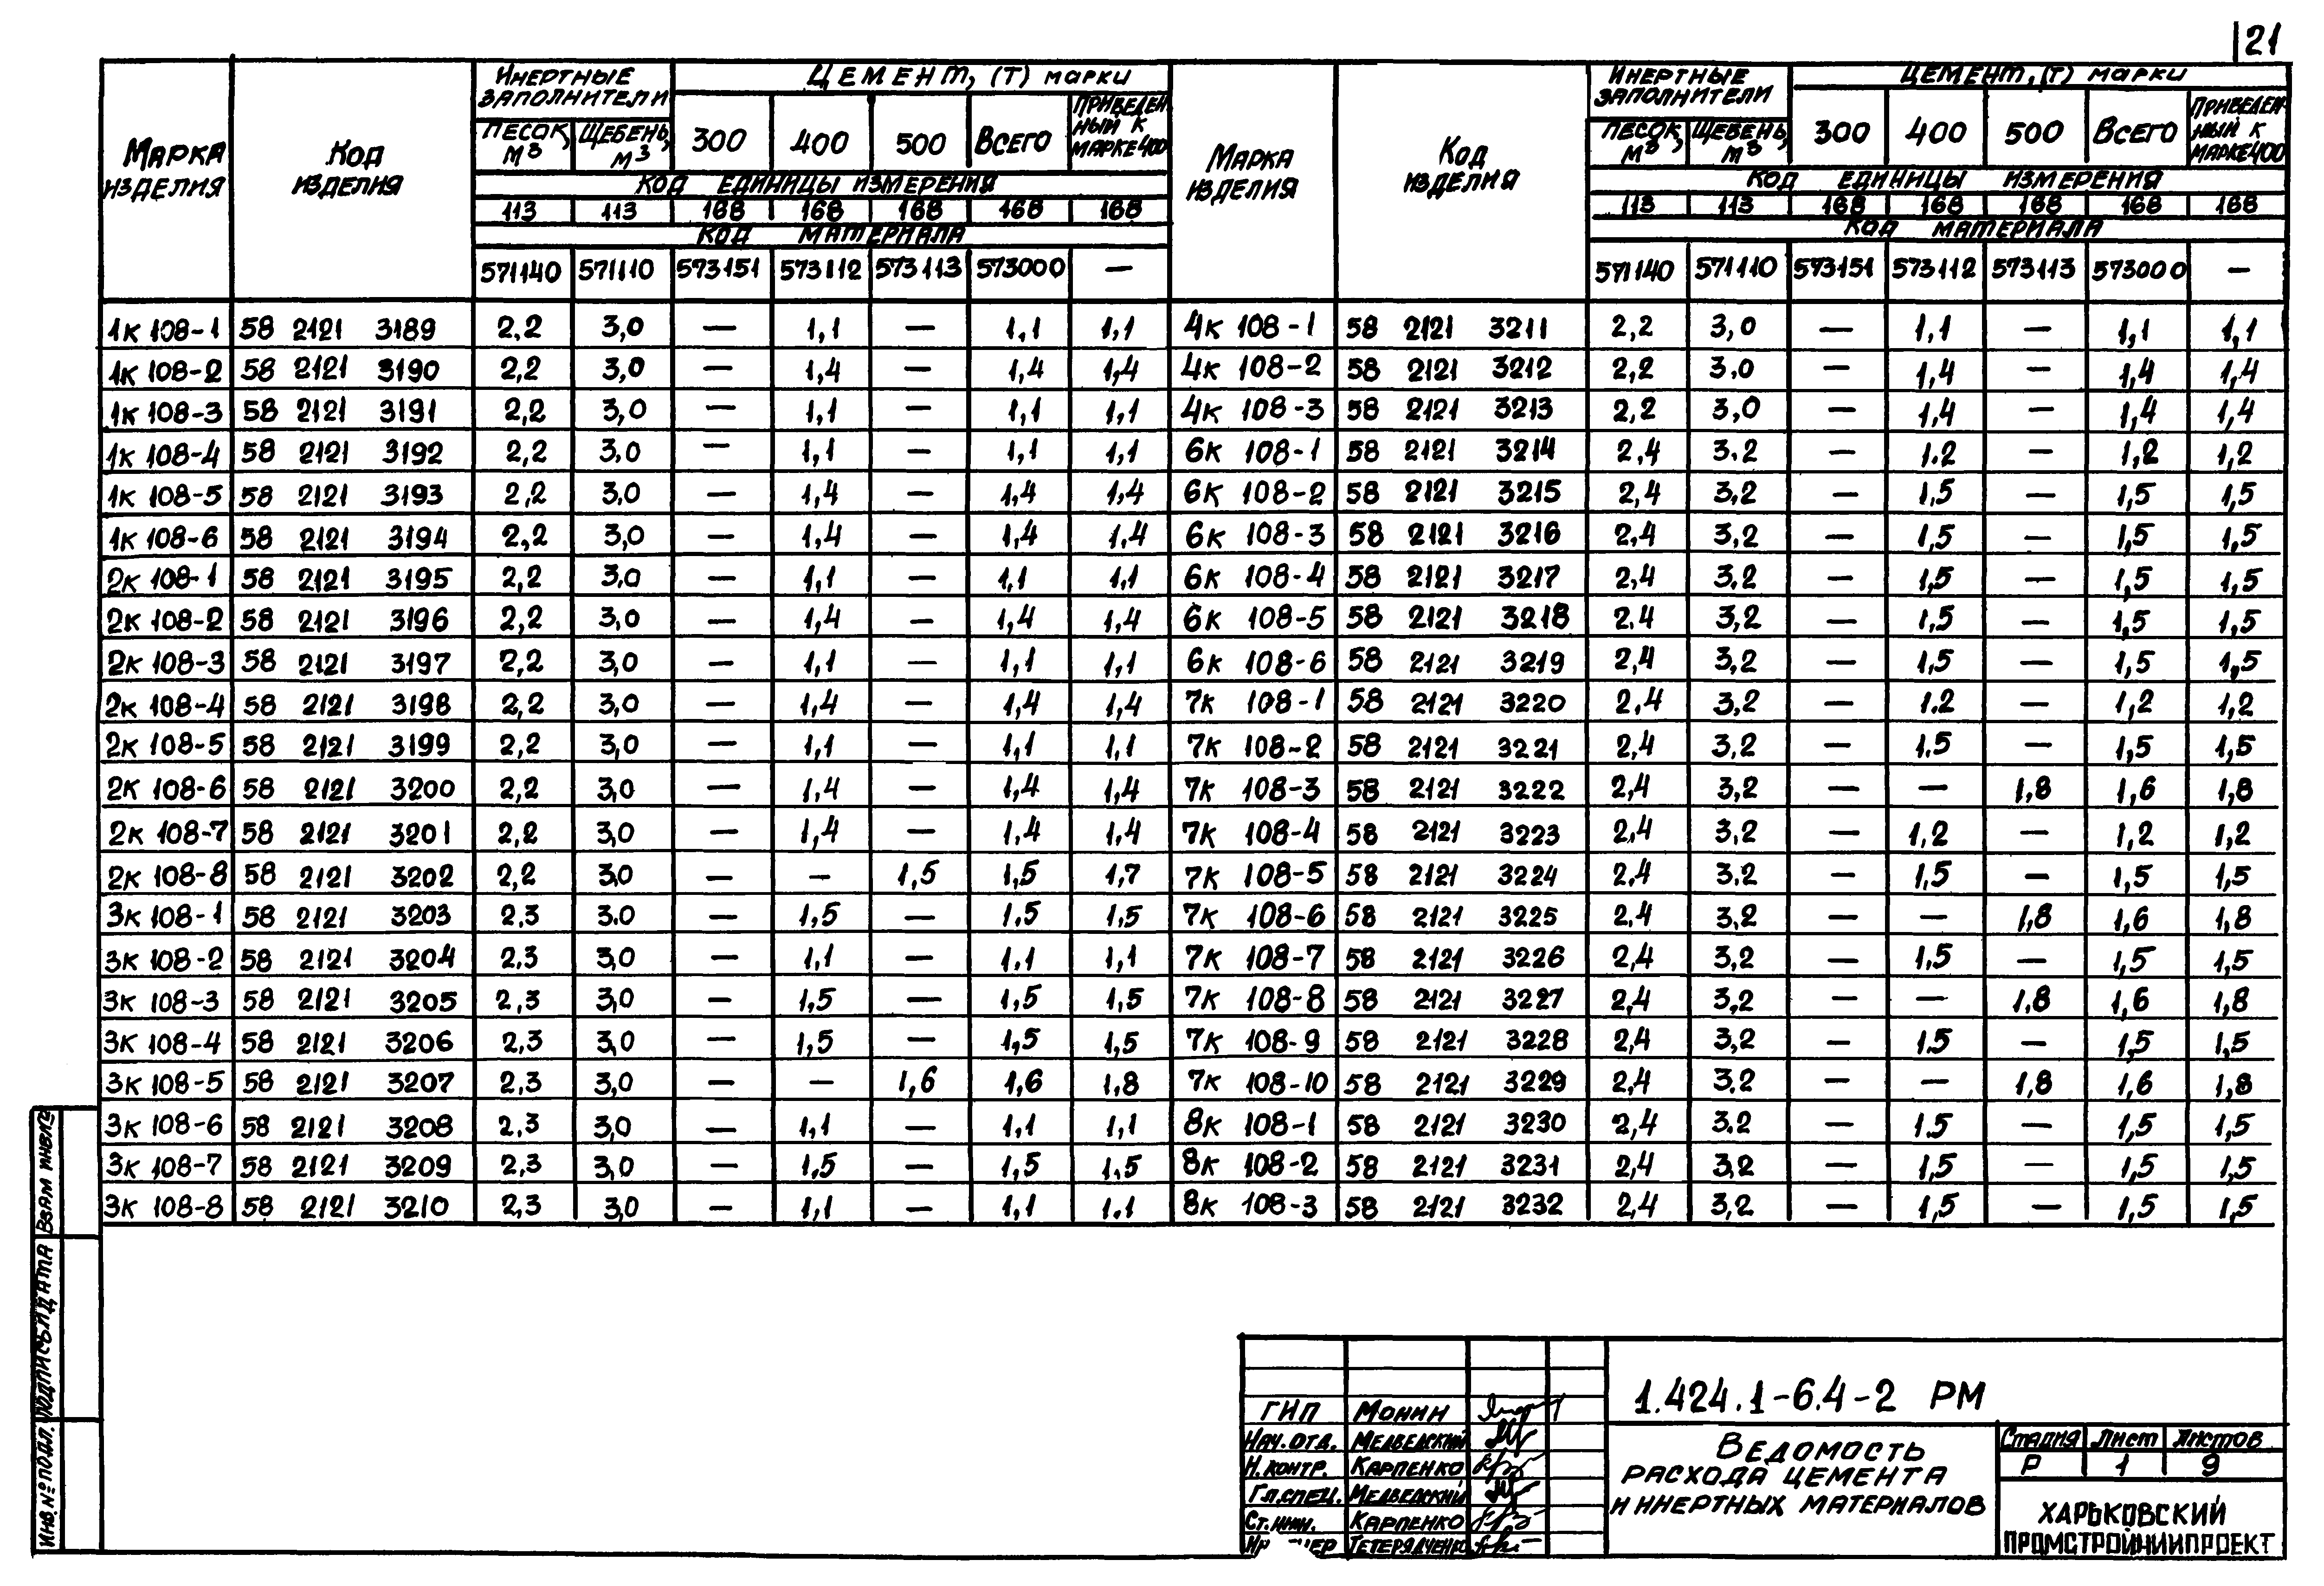 21
Марка изделия | Код изделия | Инертные заполнители | Цемент, (т) марки | Марка изделия | Код изделия | Инертные заполнители | Цемент, (т) марки
Песок, м³ | Щебень, м³ | 300 | 400 | 500 | Всего | Приведенный к марке 400 | Песок, м³ | Щебень, м³ | 300 | 400 | 500 | Всего | Приведенный к марке 400
Код единицы измерения | Код единицы измерения
113 | 113 | 168 | 168 | 168 | 168 | 168 | 113 | 113 | 168 | 168 | 168 | 168 | 168
Код материала | Код материала
571140 | 571110 | 573151 | 573112 | 573113 | 573000 | — | 571140 | 571110 | 573151 | 573112 | 573113 | 573000 | —
1к 108-1 | 58 2121 3189 | 2,2 | 3,0 | — | 1,1 | — | 1,1 | 1,1 | 4к 108-1 | 58 2121 3211 | 2,2 | 3,0 | — | 1,1 | — | 1,1 | 1,1
1к 108-2 | 58 2121 3190 | 2,2 | 3,0 | — | 1,4 | — | 1,4 | 1,4 | 4к 108-2 | 58 2121 3212 | 2,2 | 3.0 | — | 1,4 | — | 1,4 | 1,4
1к 108-3 | 58 2121 3191 | 2,2 | 3,0 | — | 1,1 | — | 1,1 | 1,1 | 4к 108-3 | 58 2121 3213 | 2,2 | 3,0 | — | 1,4 | — | 1,4 | 1,4
1к 108-4 | 58 2121 3192 | 2,2 | 3.0 | — | 1,1 | — | 1,1 | 1,1 | 6к 108-1 | 58 2121 3214 | 2,4 | 3.2 | — | 1.2 | — | 1,2 | 1,2
1к 108-5 | 58 2121 3193 | 2,2 | 3.0 | — | 1,4 | — | 1,4 | 1,4 | 6к 108-2 | 58 2121 3215 | 2,4 | 3.2 | — | 1,5 | — | 1,5 | 1,5
1к 108-6 | 58 2121 3194 | 2,2 | 3,0 | — | 1,4 | — | 1,4 | 1,4 | 6к 108-3 | 58 2121 3216 | 2,4 | 3,2 | — | 1,5 | — | 1,5 | 1,5
2к 108-1 | 58 2121 3195 | 2,2 | 3,0 | — | 1,1 | — | 1,1 | 1,1 | 6к 108-4 | 58 2121 3217 | 2,4 | 3.2 | — | 1,5 | — | 1,5 | 1,5
2к 108-2 | 58 2121 3196 | 2,2 | 3,0 | — | 1,4 | — | 1,4 | 1,4 | 6к 108-5 | 58 2121 3218 | 2.4 | 3,2 | — | 1,5 | — | 1,5 | 1,5
2к 108-3 | 58 2121 3197 | 2,2 | 3,0 | — | 1,1 | — | 1,1 | 1,1 | 6к 108-6 | 58 2121 3219 | 2,4 | 3.2 | — | 1,5 | — | 1,5 | 1,5
2к 108-4 | 58 2121 3198 | 2,2 | 3,0 | — | 1,4 | — | 1,4 | 1,4 | 7к 108-1 | 58 2121 3220 | 2,4 | 3,2 | — | 1.2 | — | 1,2 | 1,2
2к 108-5 | 58 2121 3199 | 2,2 | 3,0 | — | 1,1 | — | 1,1 | 1,1 | 7к 108-2 | 58 2121 3221 | 2,4 | 3,2 | — | 1.5 | — | 1,5 | 1,5
2к 108-6 | 58 2121 3200 | 2,2 | 3,0 | — | 1,4 | — | 1,4 | 1,4 | 7к 108-3 | 58 2121 3222 | 2,4 | 3,2 | — | — | 1,8 | 1,6 | 1,8
2к 108-7 | 58 2121 3201 | 2,2 | 3,0 | — | 1,4 | — | 1,4 | 1,4 | 7к 108-4 | 58 2121 3223 | 2,4 | 3,2 | — | 1,2 | — | 1,2 | 1,2
2к 108-8 | 58 2121 3202 | 2,2 | 3,0 | — | — | 1,5 | 1,5 | 1,7 | 7к 108-5 | 58 2121 3224 | 2,4 | 3.2 | — | 1,5 | — | 1,5 | 1,5
3к 108-1 | 58 2121 3203 | 2,3 | 3.0 | — | 1,5 | — | 1,5 | 1,5 | 7к 108-6 | 58 2121 3225 | 2,4 | 3,2 | — | — | 1,8 | 1,6 | 1,8
3к 108-2 | 58 2121 3204 | 2,3 | 3,0 | — | 1,1 | — | 1,1 | 1,1 | 7к 108-7 | 58 2121 3226 | 2,4 | 3,2 | — | 1,5 | — | 1,5 | 1,5
3к 108-3 | 58 2121 3205 | 2,3 | 3,0 | — | 1,5 | — | 1,5 | 1,5 | 7к 108-8 | 58 2121 3227 | 2,4 | 3,2 | — | — | 1,8 | 1,6 | 1,8
3к 108-4 | 58 2121 3206 | 2,3 | 3,0 | — | 1,5 | — | 1,5 | 1,5 | 7к 108-9 | 58 2121 3228 | 2,4 | 3,2 | — | 1.5 | — | 1,5 | 1,5
3к 108-5 | 58 2121 3207 | 2,3 | 3,0 | — | — | 1,6 | 1,6 | 1,8 | 7к 108-10 | 58 2121 3229 | 2,4 | 3.2 | — | — | 1,8 | 1,6 | 1,8
3к 108-6 | 58 2121 3208 | 2,3 | 3,0 | — | 1,1 | — | 1,1 | 1,1 | 8к 108-1 | 58 2121 3230 | 2,4 | 3.2 | — | 1.5 | — | 1,5 | 1,5
3к 108-7 | 58 2121 3209 | 2,3 | 3,0 | — | 1,5 | — | 1,5 | 1,5 | 8к 108-2 | 58 2121 3231 | 2,4 | 3,2 | — | 1,5 | — | 1,5 | 1,5
3к 108-8 | 58 2121 3210 | 2,3 | 3,0 | — | 1,1 | — | 1,1 | 1.1 | 8к 108-3 | 58 2121 3232 | 2,4 | 3,2 | — | 1,5 | — | 1,5 | 1,5
Взам инв.№
Подпись и дата
Инв. № подл.
ГИП Монин
Нач. отд. Медведский
Н. контр. Карпенко
Гл. спец. Медведский
Ст. инж. Карпенко
Тетерядченко
1.424.1-6.4-2 РМ
Ведомость
расхода цемента
и инертных материалов
Стадия Лист Листов
Р 1 9
Харьковский
Промстройниипроект